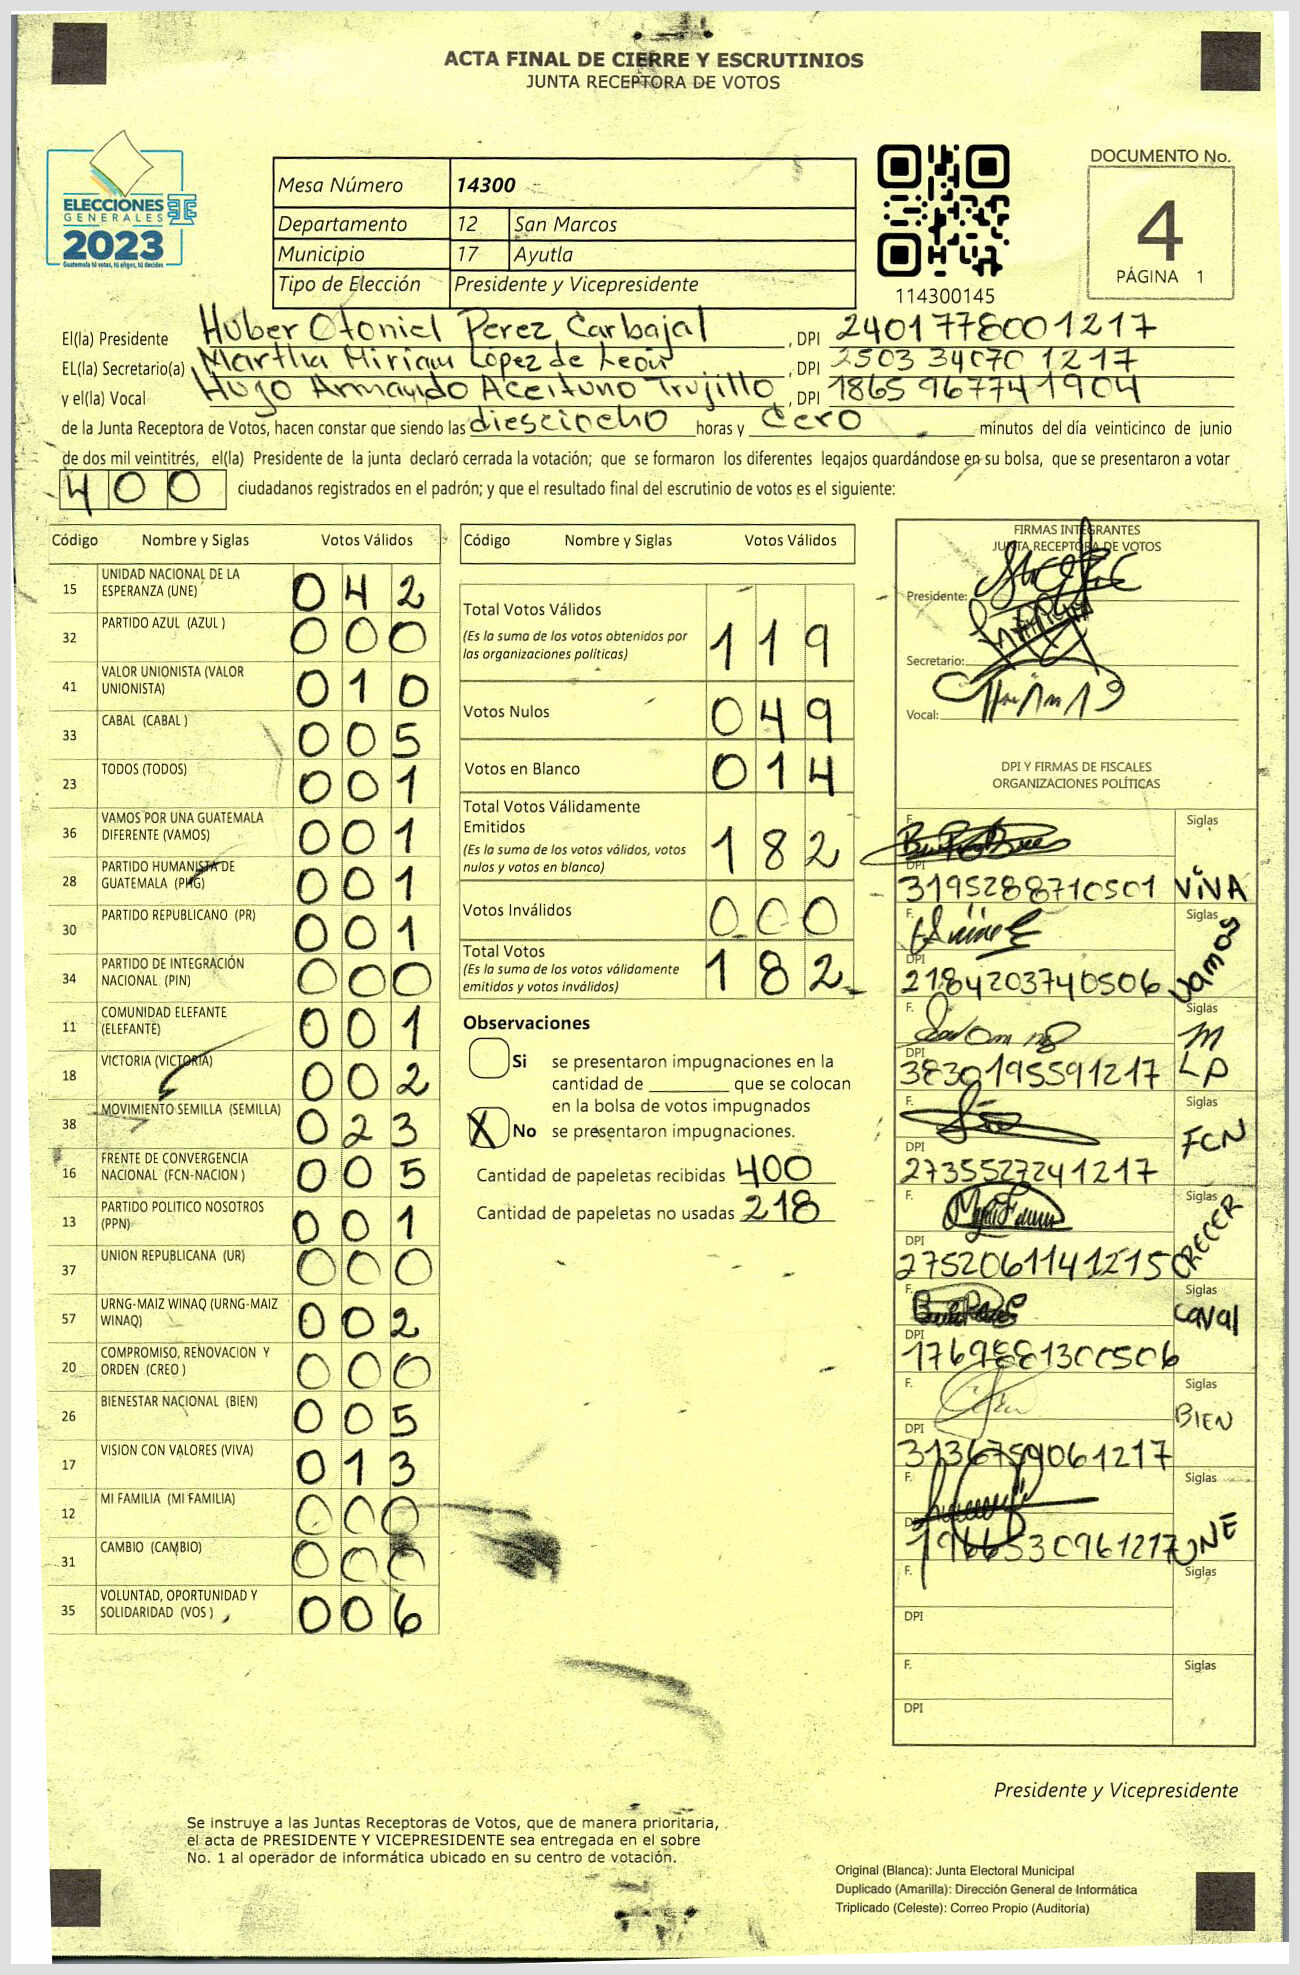 ACTA FINAL DE CIERRE Y ESCRUTINIOS
JUNTA RECEPTORA DE VOTOS
ELECCIONES
GENERALES
2023
Guatemala tú votas, tú eliges, tú decides
Mesa Número 14300
Departamento 12 San Marcos
Municipio 17 Ayutla
Tipo de Elección Presidente y Vicepresidente
114300145
DOCUMENTO No.
4
PÁGINA 1
El(la) Presidente Huber Otoniel Perez Carbajal, DPI 2401778001217
EL(la) Secretario(a) Martha Miriam López de León, DPI 2503 34070 1217
y el(la) Vocal Hugo Armando Aceituno Trujillo, DPI 1865 967741904
de la Junta Receptora de Votos, hacen constar que siendo las diesciocho horas y Cero minutos del día veinticinco de junio
de dos mil veintitrés, el(la) Presidente de la junta declaró cerrada la votación; que se formaron los diferentes legajos guardándose en su bolsa, que se presentaron a votar
400 ciudadanos registrados en el padrón; y que el resultado final del escrutinio de votos es el siguiente:
Código Nombre y Siglas Votos Válidos
15 UNIDAD NACIONAL DE LA ESPERANZA (UNE) 042
32 PARTIDO AZUL (AZUL ) 000
41 VALOR UNIONISTA (VALOR UNIONISTA) 010
33 CABAL (CABAL ) 005
23 TODOS (TODOS) 001
36 VAMOS POR UNA GUATEMALA DIFERENTE (VAMOS) 001
28 PARTIDO HUMANISTA DE GUATEMALA (PHG) 001
30 PARTIDO REPUBLICANO (PR) 001
34 PARTIDO DE INTEGRACIÓN NACIONAL (PIN) 000
11 COMUNIDAD ELEFANTE (ELEFANTE) 001
18 VICTORIA (VICTORIA) 002
38 MOVIMIENTO SEMILLA (SEMILLA) 023
16 FRENTE DE CONVERGENCIA NACIONAL (FCN-NACION ) 005
13 PARTIDO POLITICO NOSOTROS (PPN) 001
37 UNION REPUBLICANA (UR) 000
57 URNG-MAIZ WINAQ (URNG-MAIZ WINAQ) 002
20 COMPROMISO, RENOVACION Y ORDEN (CREO ) 000
26 BIENESTAR NACIONAL (BIEN) 005
17 VISION CON VALORES (VIVA) 013
12 MI FAMILIA (MI FAMILIA) 000
31 CAMBIO (CAMBIO) 000
35 VOLUNTAD, OPORTUNIDAD Y SOLIDARIDAD (VOS ) 006
Código Nombre y Siglas Votos Válidos
Total Votos Válidos
(Es la suma de los votos obtenidos por
las organizaciones políticas) 119
Votos Nulos 049
Votos en Blanco 014
Total Votos Válidamente
Emitidos
(Es la suma de los votos válidos, votos
nulos y votos en blanco) 182
Votos Inválidos 000
Total Votos
(Es la suma de los votos válidamente
emitidos y votos inválidos) 182
Observaciones
Si se presentaron impugnaciones en la
cantidad de ________ que se colocan
en la bolsa de votos impugnados
X No se presentaron impugnaciones.
Cantidad de papeletas recibidas 400
Cantidad de papeletas no usadas 218
FIRMAS INTEGRANTES
JUNTA RECEPTORA DE VOTOS
Presidente:
Secretario:
Vocal:
DPI Y FIRMAS DE FISCALES
ORGANIZACIONES POLÍTICAS
F. Siglas
DPI 3195288710501 ViVA
F. Siglas
DPI 2184203740506 Vamos
F. Siglas
DPI 3830195591217 M LP
F. Siglas
DPI 2735527241217 FCN
F. Siglas
DPI 2752061141215 CRECER
F. Siglas
DPI 1769881300506 Caval
F. Siglas
DPI 3136759061217 BIEN
F. Siglas
DPI 1966530961217 UNE
F. Siglas
DPI
F. Siglas
DPI
Presidente y Vicepresidente
Se instruye a las Juntas Receptoras de Votos, que de manera prioritaria,
el acta de PRESIDENTE Y VICEPRESIDENTE sea entregada en el sobre
No. 1 al operador de informática ubicado en su centro de votación.
Original (Blanca): Junta Electoral Municipal
Duplicado (Amarilla): Dirección General de Informática
Triplicado (Celeste): Correo Propio (Auditoría)